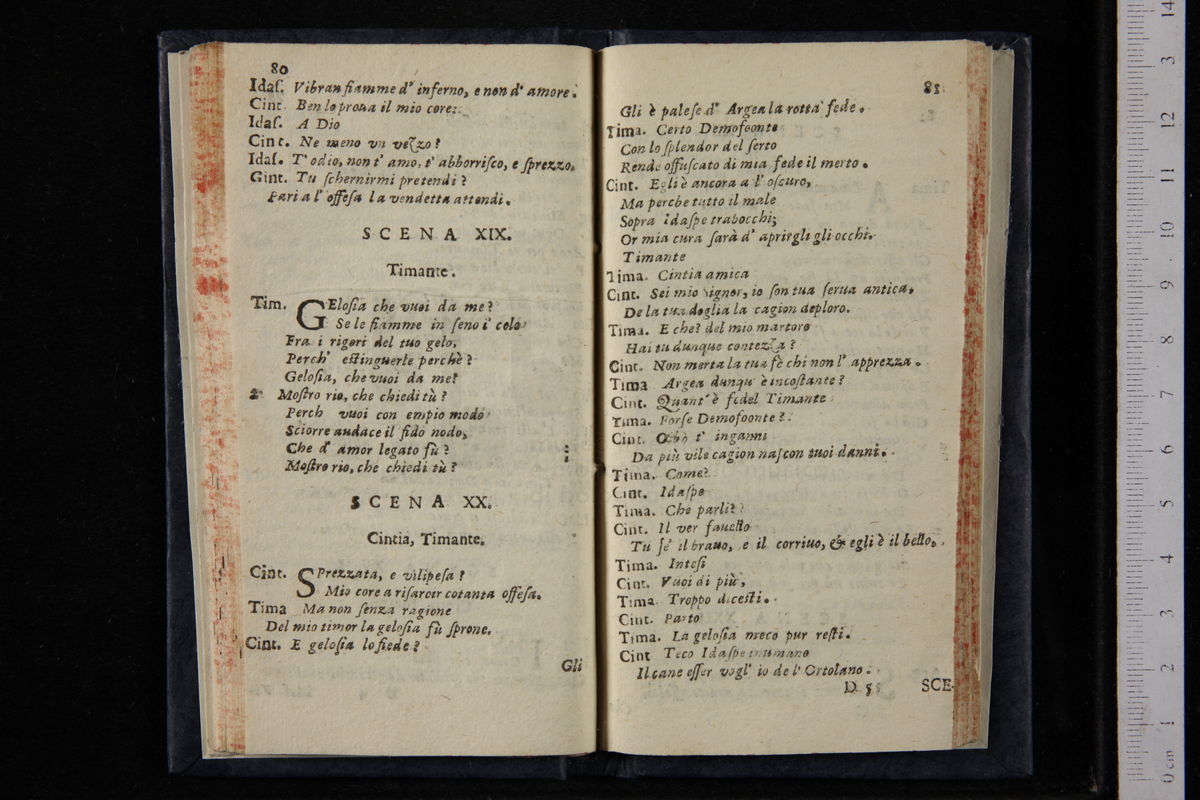 80
Idaſ. Vibran fiamme d' inferno, e non d' amore.
Cint. Ben lo proua il mio core:
Idaſ. A Dio
Cint. Ne meno vn vezzo?
Idaſ. T' odio, non t' amo, t' abborriſco, e ſprezzo.
Gint. Tu ſchernirmi pretendi?
Pari a l' offeſa la vendetta attendi.
SCENA XIX.
Timante.
Tim. GEloſia che vuoi da me?
Se le fiamme in ſeno i' celo
Fra i rigori del tuo gelo,
Perch' eſtinguerle perchè?
Geloſia, che vuoi da me?
2 Moſtro rio, che chiedi tù?
Perch vuoi con empio modo
Sciorre audace il fido nodo,
Che d' amor legato fù?
Moſtro rio, che chiedi tù?
SCENA XX.
Cintia, Timante.
Cint. SPrezzata, e vilipeſa?
Mio core a riſarcir cotanta offeſa.
Tima Ma non ſenza ragione
Del mio timor la geloſia fù ſprone.
Cint. E geloſia lo fiede?
Gli
81
Gli è paleſe d' Argea la rotta fede.
Tima. Certo Demofoonte
Con lo ſplendor del ſerto
Rende offuſcato di mia fede il merto.
Cint. Egli è ancora a l' oſcuro,
Ma perche tutto il male
Sopra Idaſpe trabocchi;
Or mia cura ſarà d' aprirgli gli occhi.
Timante
Tima. Cintia amica
Cint. Sei mio ſignor, io ſon tua ſerua antica,
De la tua doglia la cagion deploro.
Tima. E che? del mio martoro
Hai tu dunque contezza?
Cint. Non merta la tua fè chi non l' apprezza.
Tima Argea dunqu' è incoſtante?
Cint. Quant' è fedel Timante
Tima. Forſe Demofoonte?
Cint. Oibò t' inganni
Da più vile cagion naſcon tuoi danni.
Tima. Come?
Cint. Idaſpe
Tima. Che parli?
Cint. Il ver fauello
Tu ſe' il brauo, e il corriuo, & egli è il bello.
Tima. Inteſi
Cint. Vuoi di più,
Tima. Troppo diceſti.
Cint. Parto
Tima. La geloſia meco pur reſti.
Cint Teco Idaſpe inumano
Il cane eſſer vogl' io de l' Ortolano.
D 5
SCE-